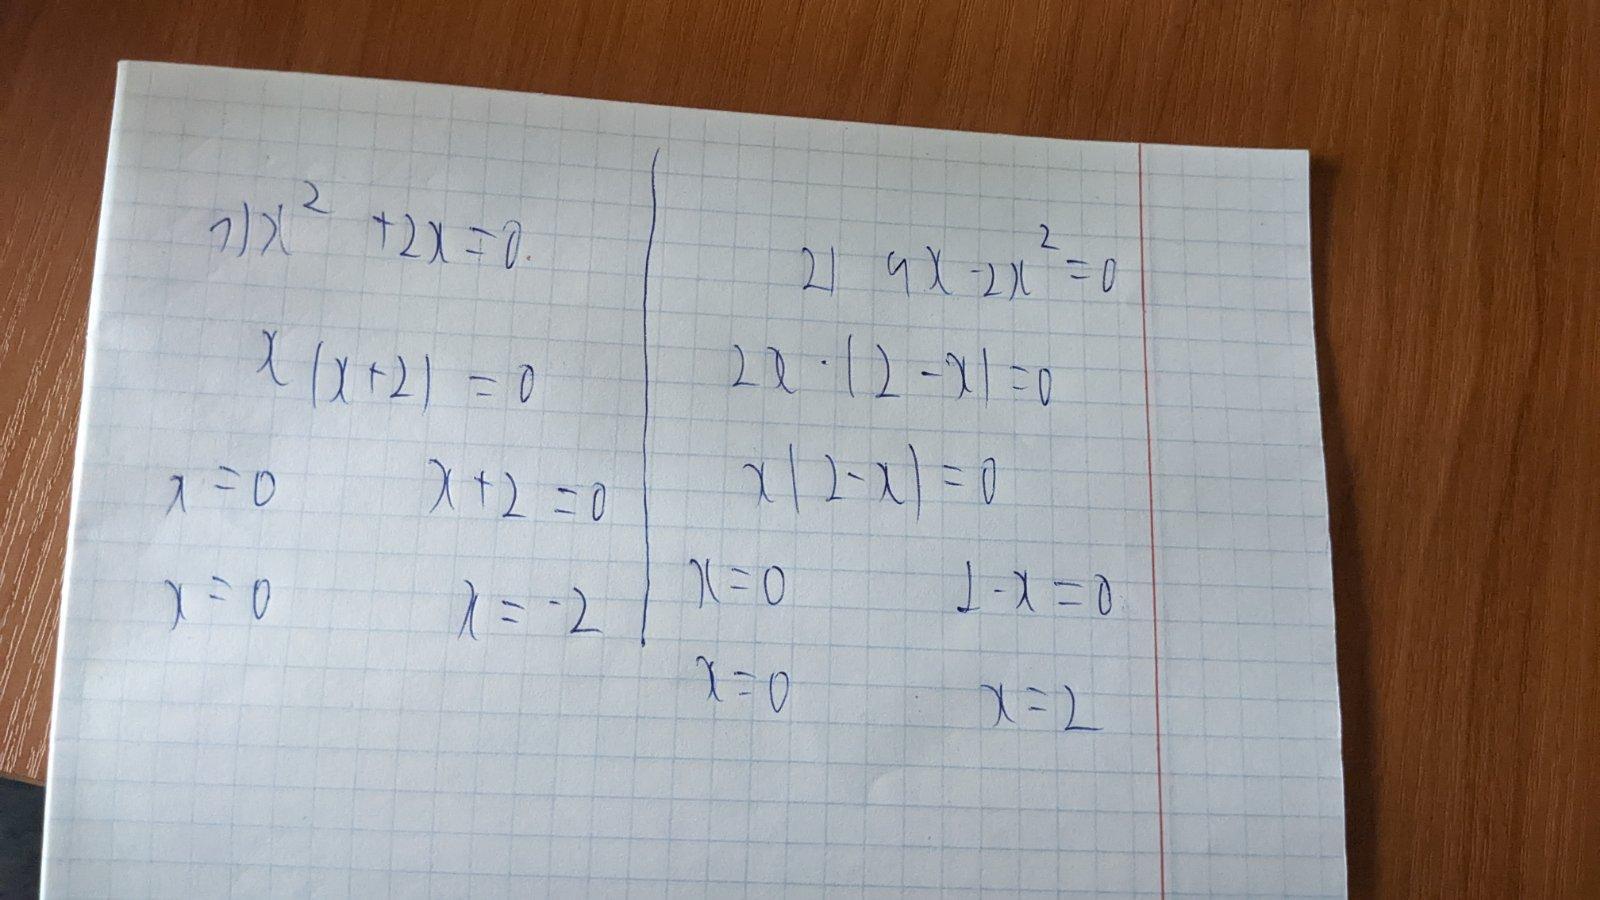 1) x² +2x=0.
x (x+2) = 0
x=0 x+2=0
x=0 x=-2
2) 4x-2x²=0
2x·(2-x)=0
x(2-x)=0
x=0 2-x=0
x=0 x=2